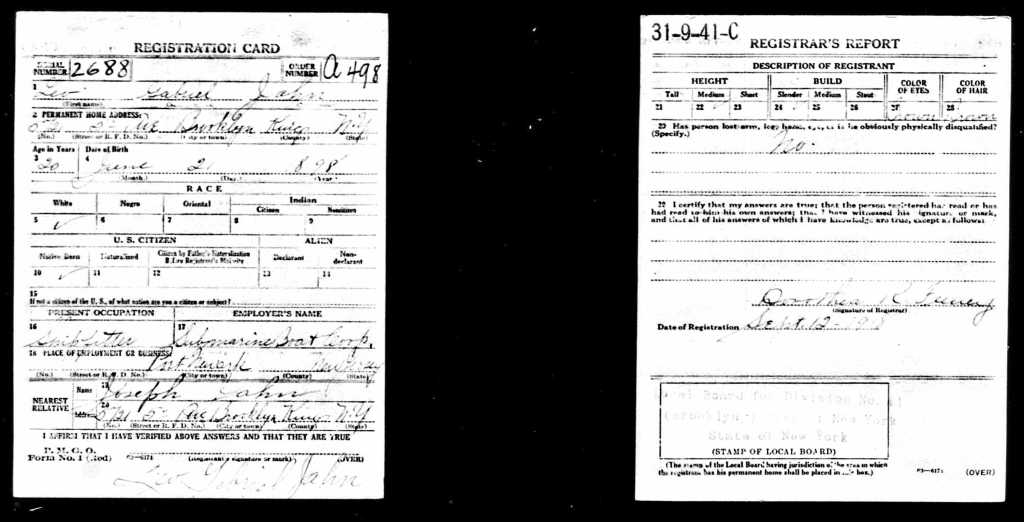 REGISTRATION CARD
SERIAL NUMBER 2688 ORDER NUMBER A498
1 Leo Gabriel Jahn
(First name)
2 PERMANENT HOME ADDRESS:
5th Ave Brooklyn Kings N.Y.
(No.) (Street or R. F. D. No.) (City or town) (County) (State)
Age in Years Date of Birth
3 20 4 June 21 898
(Month.) (Day.) (Year.)
RACE
White Negro Oriental Indian
Citizen Noncitizen
5 ✓ 6 7 8 9
U. S. CITIZEN ALIEN
Native Born Naturalized Citizen by Father's Naturalization Before Registrant's Majority Declarant Non-declarant
10 ✓ 11 12 13 14
15
If not a citizen of the U. S., of what nation are you a citizen or subject?
PRESENT OCCUPATION EMPLOYER'S NAME
16 Shipfitter 17 Submarine Boat Corp.
18 PLACE OF EMPLOYMENT OR BUSINESS:
Port Newark New Jersey
(No.) (Street or R. F. D. No.) (City or town) (County) (State)
NEAREST RELATIVE Name 19 Joseph Jahn
Address 20 5th Ave Brooklyn Kings N.Y.
(No.) (Street or R. F. D. No.) (City or town) (County) (State)
I AFFIRM THAT I HAVE VERIFIED ABOVE ANSWERS AND THAT THEY ARE TRUE
P. M. G. O.
Form No. 1 (Red) 03—6171 (Registrant's signature or mark) (OVER)
Leo Gabriel Jahn
31-9-41-C
REGISTRAR'S REPORT
DESCRIPTION OF REGISTRANT
HEIGHT BUILD COLOR OF EYES COLOR OF HAIR
Tall Medium Short Slender Medium Stout
21 22 23 24 25 26 27 Brown 28 Brown
29 Has person lost arm, leg, hand, eye, or is he obviously physically disqualified?
(Specify.) No.
30 I certify that my answers are true; that the person registered has read or has
had read to him his own answers; that I have witnessed his signature or mark,
and that all of his answers of which I have knowledge are true, except as follows:
Dorothea K.
(Signature of Registrar)
Date of Registration Sept 12 - 1918
Local Board for Division No. 41
Brooklyn, New York
State of New York
(STAMP OF LOCAL BOARD)
(The stamp of the Local Board having jurisdiction of the area in which
the registrant has his permanent home shall be placed in this box.)
03—6171 (OVER)